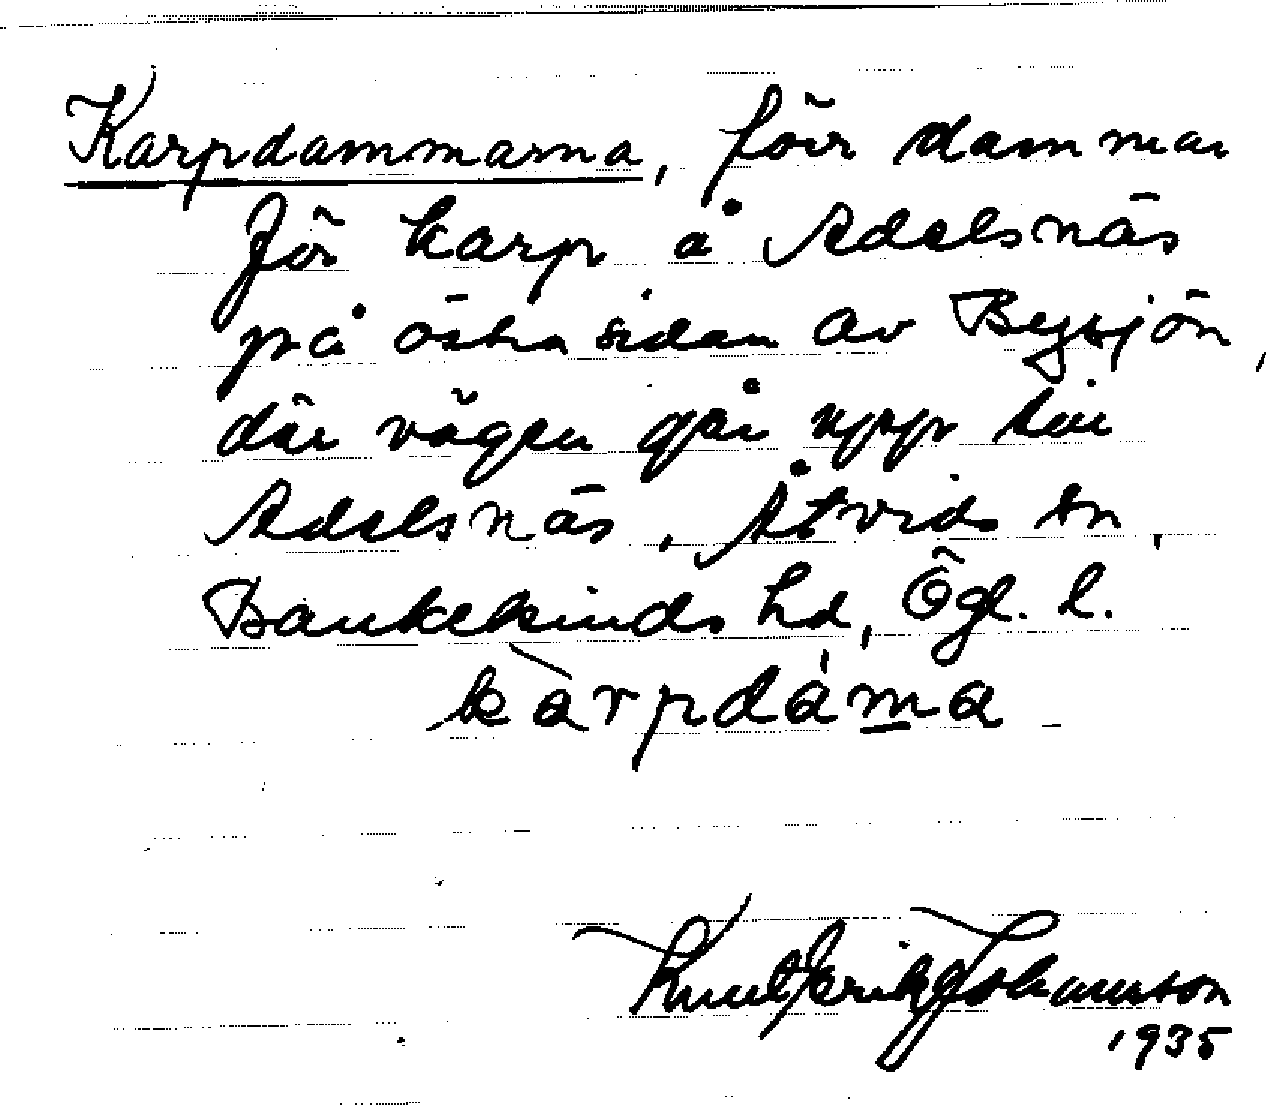 Karpdammarna, förr dammar
för karp å Adelsnäs
på östra sidan av Bysjön,
där vägen går upp till
Adelsnäs, Åtvids sn,
Bankekinds hd, Ögl. l.
kàrpdáma
Knut Erik Johansson
1935